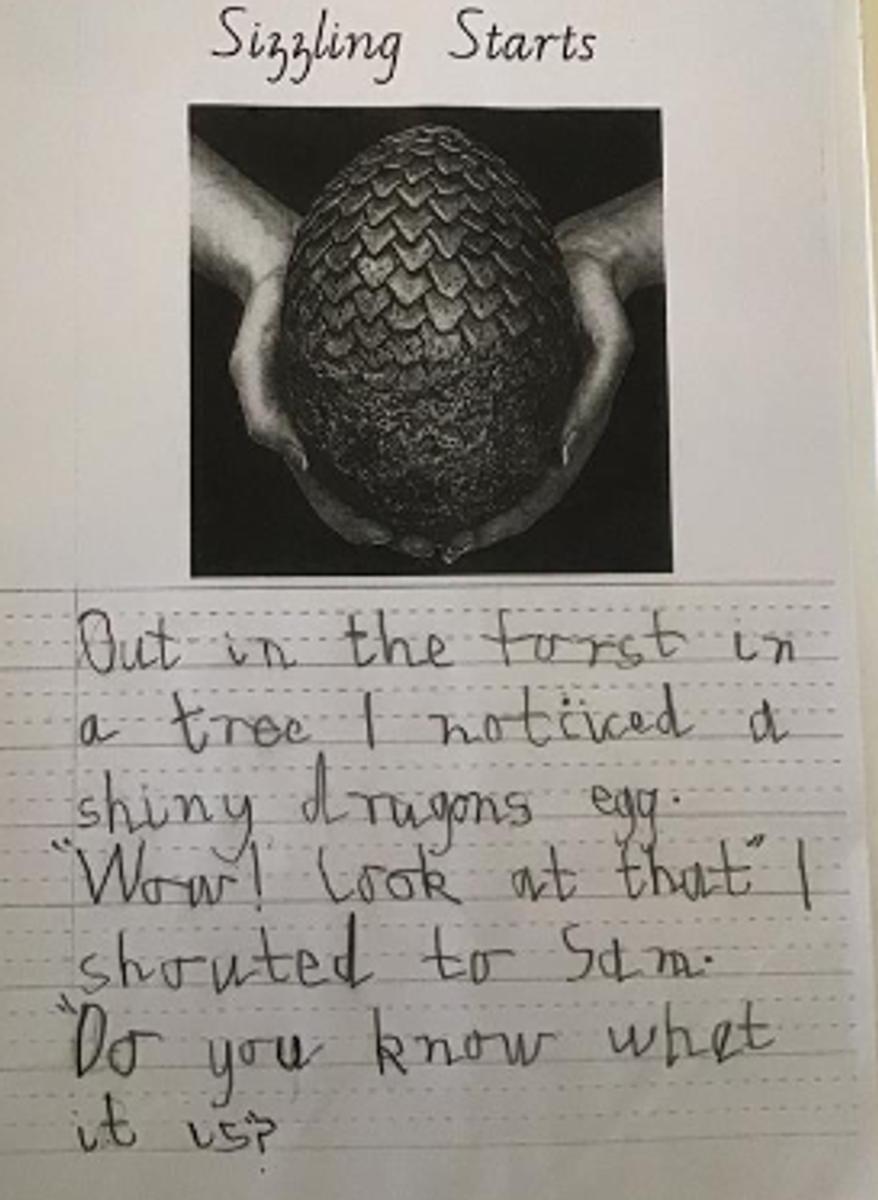 Sizzling Starts
Out in the forst in
a tree I noticed a
shiny dragons egg.
"Wow! Look at that" I
shouted to Sam.
"Do you know what
it is?"